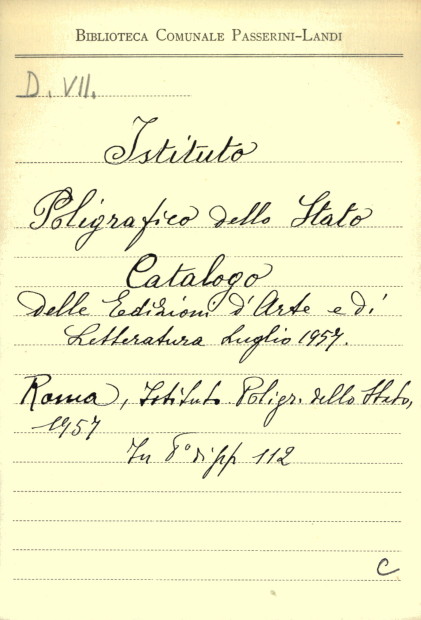 BIBLIOTECA COMUNALE PASSERINI-LANDI
D. VII.
Istituto
Poligrafico dello Stato
Catalogo
delle Edizioni d'Arte e di
Letteratura Luglio 1957.
Roma, Istituto Poligr. dello Stato,
1957
In 8° di pp 112
C